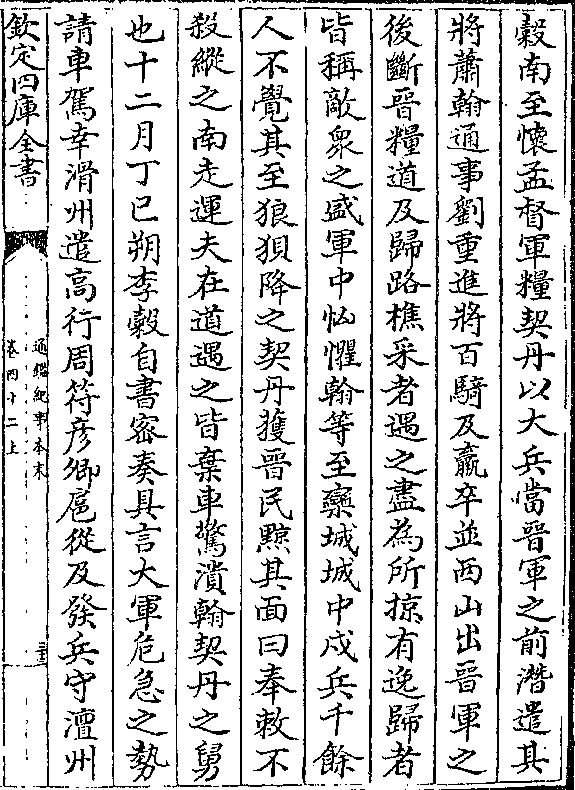 穀南至懷孟督軍糧契丹以大兵當晉軍之前潛遣其
將蕭翰通事劉重進將百騎及羸卒並西山出晉軍之
後斷晉糧道及歸路樵采者遇之盡為所掠有逸歸者
皆稱敵衆之盛軍中忷懼翰等至欒城城中戍兵千餘
人不覺其至狼狽降之契丹獲晉民黥其面曰奉敕不
殺縱之南走運夫在道遇之皆棄車驚潰翰契丹之舅
也十二月丁巳朔李穀自書密奏具言大軍危急之勢
請車駕幸滑州遣高行周符彥卿扈從及發兵守澶州
欽定四庫全書
通鑑紀事本末
卷四十二上